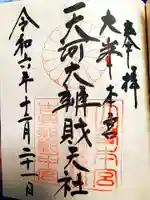 奉拝
大峯本宮
天河大辨財天社
令和六年十二月二十一日